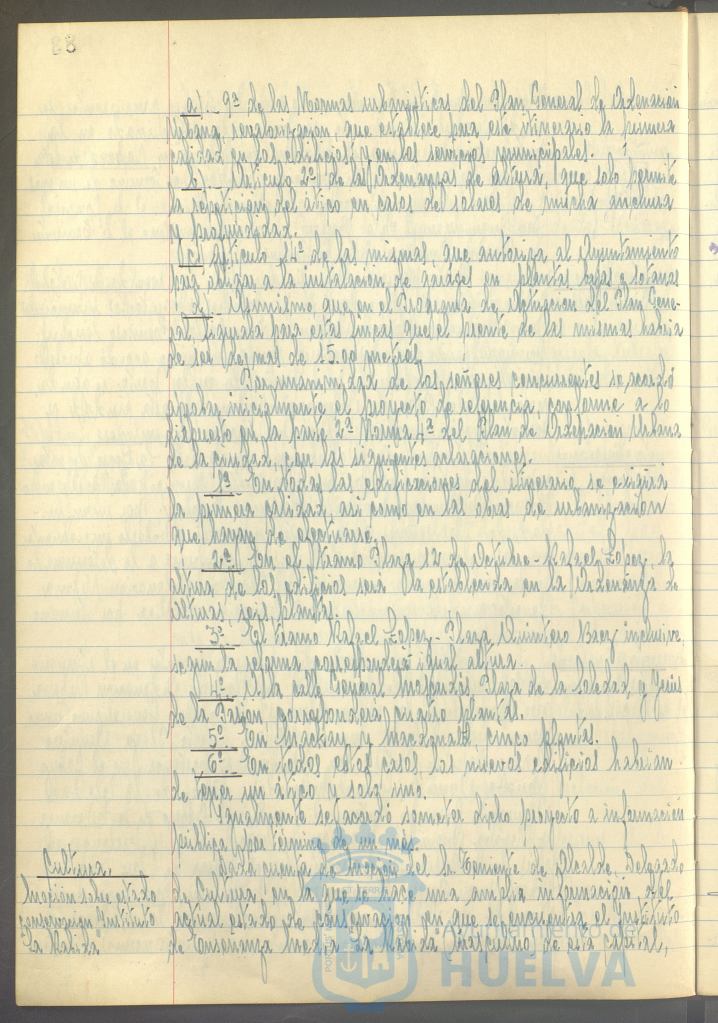 88
a).- 9ª de las Normas urbanísticas del Plan General de Ordenación
Urbana, revalorización, que establece para este itinerario la primera
calidad en los edificios y en los servicios municipales.
b).- Artículo 2º de las Ordenanzas de altura, que solo permite
la repetición del ático en casos de solares de mucha anchura
y profundidad.
c).- Artículo 14º de las mismas, que autoriza al Ayuntamiento
para obligar a la instalación de garages en plantas bajas o sótanos
d).- Asimismo que en el Programa de Actuación del Plan Gene-
ral, figuraba para estas fincas que el frente de las mismas habría
de ser de más de 15.00 metros.
Por unanimidad de los señores concurrentes se acordó
aprobar inicialmente el proyecto de referencia, conforme a lo
dispuesto en la parte 2ª Norma 4ª del Plan de Ordenación Urbana
de la ciudad, con las siguientes actuaciones.
1º.- En todas las edificaciones del itinerario se exigirá
la primera calidad, así como en las obras de urbanización
que hayan de efectuarse.
2º.- En el tramo Plaza 12 de Octubre - Rafael López, la
altura de los edificios será la establecida en la Ordenanza de
Alturas, seis plantas.
3º.- El tramo Rafael López - Plaza Quintero Baez inclusive,
según la reforma, corresponderá igual altura.
4º.- A la calle General Mos Plaza de la Soledad, y Jesús
de la Pasión corresponderá cuatro plantas.
5º.- En y cinco plantas.
6º.- En todos estos casos, los nuevos edificios habrían
de tener un ático y solo uno.
Igualmente se acordó someter dicho proyecto a información
pública por término de un mes.
Cultura.
Moción sobre estado
conservación Instituto
La Rábida
Dada cuenta de moción del Sr. Teniente de Alcalde, Delegado
de Cultura, en la que se hace una amplia información del
actual estado de conservación en que se encuentra el Instituto
de Enseñanza Media La Rábida (masculino) de esta capital,
Ayuntamiento de
HUELVA